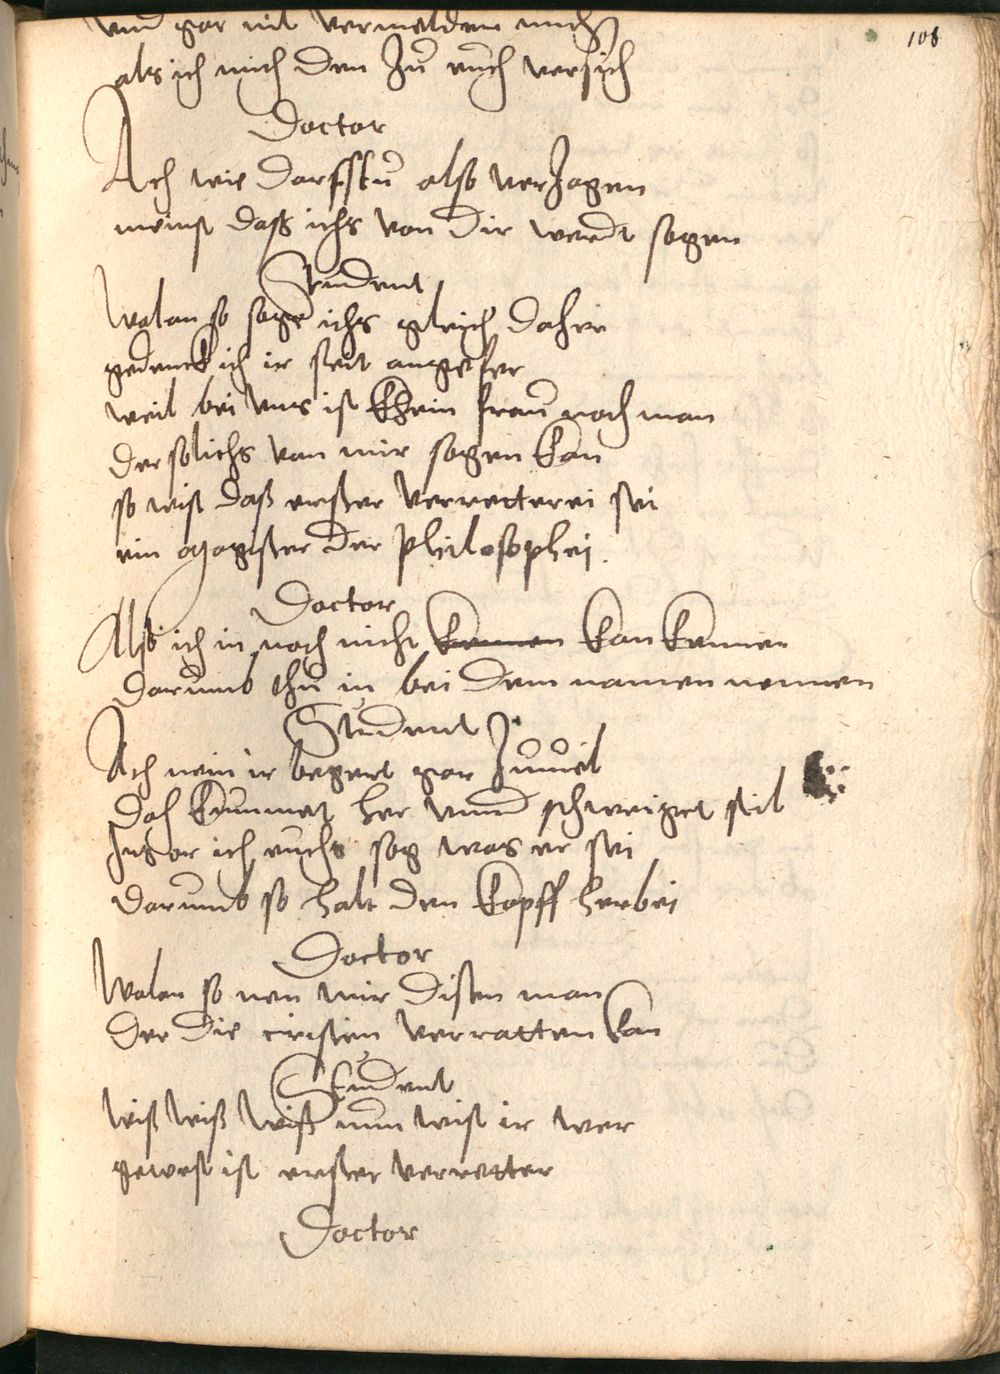 108
vnd gar nit vermelden mich
als ich mich den zu euch versich
Doctor
Ach wie darfstu also verzagen
meinst daß ichs von dir werdt sagen
Student
Wolan so sage ichs gleich daher
gedenck ich ir seit angefer
weil bei vns ist khein frau noch man
der solichs von mir sagen kan
so wist daß erster verretterei sei
ein Magister der philosophei.
Doctor
Alß ich in noch nicht kennen kan kennen
darumb thu in bei dem namen nennen
Student
Ach nein ir begert gar zuuiel
doch kummet her vnnd schweiget stil
zuuor ich euchs sag was er sei
darumb so halt den kopff herbei
Doctor
Wolan so nen mir disen man
der die ersten verratten kan
Student
Wiß wiß wiß nun wist ir wer
gewest ist erster verretter
Doctor